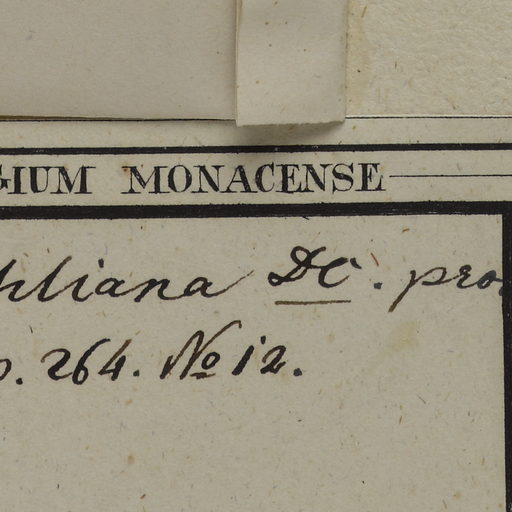 GIUM MONACENSE
hliana DC. pro.
p. 264. No 12.